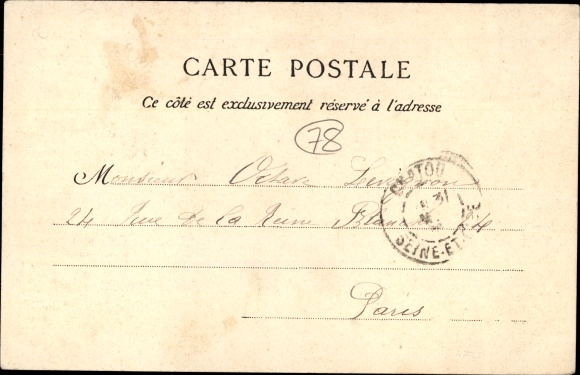 CARTE POSTALE
Ce côté est exclusivement réservé à l'adresse
78
Monsieur Octave
24 Rue de la Reine Blanche
Paris
CHATOU
31
SEINE-ET-OISE